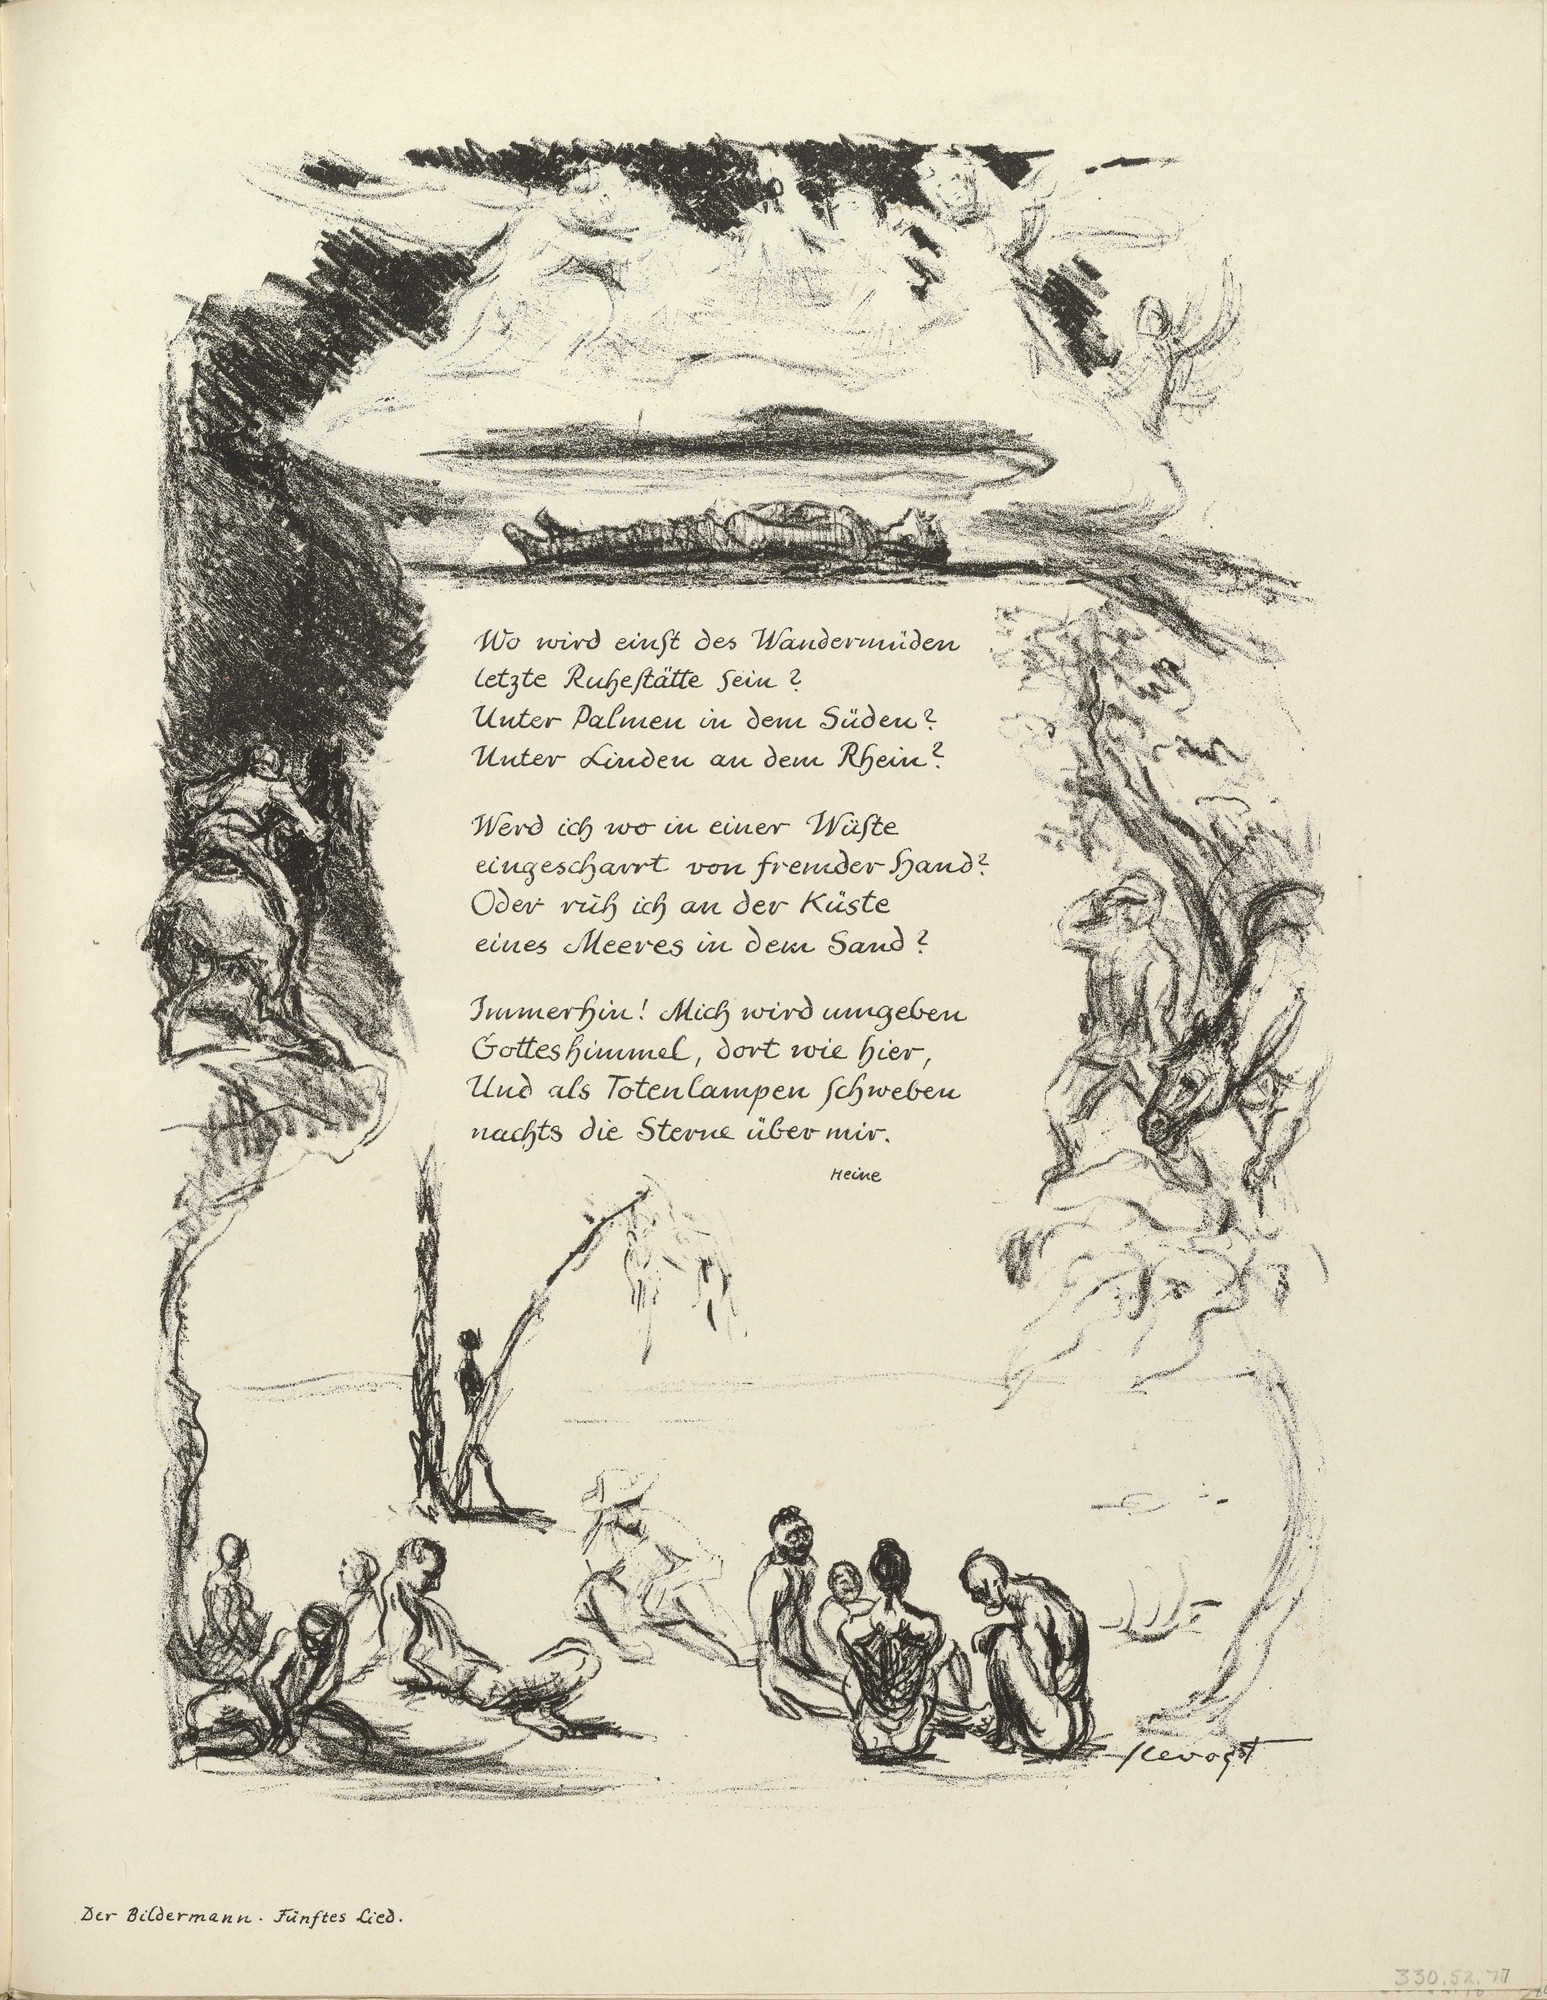 Wo wird einst des Wandermüden
letzte Ruhestätte sein?
Unter Palmen in dem Süden?
Unter Linden an dem Rhein?
Werd ich wo in einer Wüste
eingescharrt von fremder Hand?
Oder ruh ich an der Küste
eines Meeres in dem Sand?
Immerhin! Mich wird umgeben
Gotteshimmel, dort wie hier,
Und als Totenlampen schweben
nachts die Sterne über mir.
Heine
Slevogt
Der Bildermann. Fünftes Lied.
330.52.77